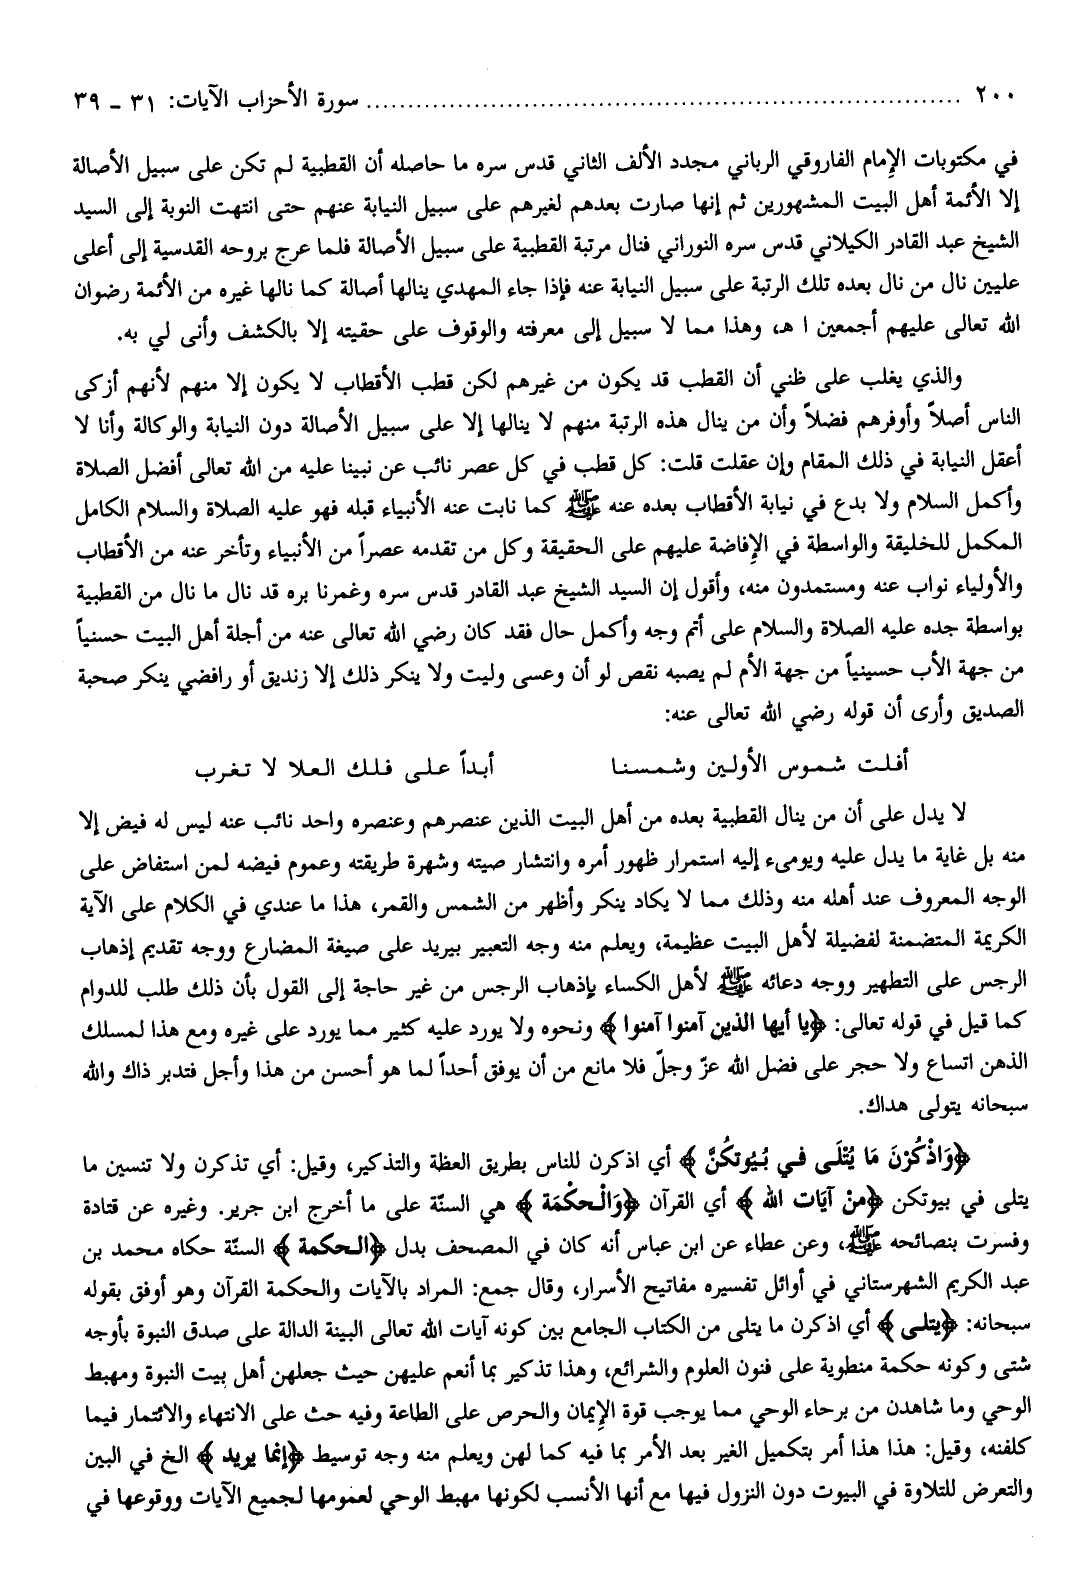 ٢٠٠ ........................................................................ سورة الأحزاب الآيات: ٣١ - ٣٩
في مكتوبات الإمام الفاروقي الرباني مجدد الألف الثاني قدس سره ما حاصله أن القطبية لم تكن على سبيل الأصالة
إلا الأئمة أهل البيت المشهورين ثم إنها صارت بعدهم لغيرهم على سبيل النيابة عنهم حتى انتهت النوبة إلى السيد
الشيخ عبد القادر الكيلاني قدس سره النوراني فنال مرتبة القطبية على سبيل الأصالة فلما عرج بروحه القدسية إلى أعلى
عليين نال من نال بعده تلك الرتبة على سبيل النيابة عنه فإذا جاء المهدي ينالها أصالة كما نالها غيره من الأئمة رضوان
الله تعالى عليهم أجمعين ا هـ، وهذا مما لا سبيل إلى معرفته والوقوف على حقيته إلا بالكشف وأنى لي به.
والذي يغلب على ظني أن القطب قد يكون من غيرهم لكن قطب الأقطاب لا يكون إلا منهم لأنهم أزكى
الناس أصلاً وأوفرهم فضلاً وأن من ينال هذه الرتبة منهم لا ينالها إلا على سبيل الأصالة دون النيابة والوكالة وأنا لا
أعقل النيابة في ذلك المقام وإن عقلت قلت: كل قطب في كل عصر نائب عن نبينا عليه من الله تعالى أفضل الصلاة
وأكمل السلام ولا بدع في نيابة الأقطاب بعده عنه ﷺ كما نابت عنه الأنبياء قبله فهو عليه الصلاة والسلام الكامل
المكمل للخليقة والواسطة في الإفاضة عليهم على الحقيقة وكل من تقدمه عصراً من الأنبياء وتأخر عنه من الأقطاب
والأولياء نواب عنه ومستمدون منه، وأقول إن السيد الشيخ عبد القادر قدس سره وغمرنا بره قد نال ما نال من القطبية
بواسطة جده عليه الصلاة والسلام على أتم وجه وأكمل حال فقد كان رضي الله تعالى عنه من أجلة أهل البيت حسنياً
من جهة الأب حسينياً من جهة الأم لم يصبه نقص لو أن وعسى وليت ولا ينكر ذلك إلا زنديق أو رافضي ينكر صحبة
الصديق وأرى أن قوله رضي الله تعالى عنه:
أفلت شموس الأولين وشمسنا أبداً على فلك العلا لا تغرب
لا يدل على أن من ينال القطبية بعده من أهل البيت الذين عنصرهم وعنصره واحد نائب عنه ليس له فيض إلا
منه بل غاية ما يدل عليه ويومىء إليه استمرار ظهور أمره وانتشار صيته وشهرة طريقته وعموم فيضه لمن استفاض على
الوجه المعروف عند أهله منه وذلك مما لا يكاد ينكر وأظهر من الشمس والقمر، هذا ما عندي في الكلام على الآية
الكريمة المتضمنة لفضيلة لأهل البيت عظيمة، ويعلم منه وجه التعبير بيريد على صيغة المضارع ووجه تقديم إذهاب
الرجس على التطهير ووجه دعائه ﷺ لأهل الكساء بإذهاب الرجس من غير حاجة إلى القول بأن ذلك طلب للدوام
كما قيل في قوله تعالى: ﴿يا أيها الذين آمنوا آمنوا﴾ ونحوه ولا يورد عليه كثير مما يورد على غيره ومع هذا لمسلك
الذهن اتساع ولا حجر على فضل الله عزّ وجلّ فلا مانع من أن يوفق أحداً لما هو أحسن من هذا وأجل فتدبر ذاك والله
سبحانه يتولى هداك.
﴿وَاذْكُرْنَ مَا يُتْلَى في بُيُوتكُنَّ﴾ أي اذكرن للناس بطريق العظة والتذكير، وقيل: أي تذكرن ولا تنسين ما
يتلى في بيوتكن ﴿منْ آيَات الله﴾ أي القرآن ﴿وَالْحكْمَة﴾ هي السنّة على ما أخرج ابن جرير. وغيره عن قتادة
وفسرت بنصائحه ﷺ، وعن عطاء عن ابن عباس أنه كان في المصحف بدل ﴿الحكمة﴾ السنّة حكاه محمد بن
عبد الكريم الشهرستاني في أوائل تفسيره مفاتيح الأسرار، وقال جمع: المراد بالآيات والحكمة القرآن وهو أوفق بقوله
سبحانه: ﴿يتلى﴾ أي اذكرن ما يتلى من الكتاب الجامع بين كونه آيات الله تعالى البينة الدالة على صدق النبوة بأوجه
شتى وكونه حكمة منطوية على فنون العلوم والشرائع، وهذا تذكير بما أنعم عليهن حيث جعلهن أهل بيت النبوة ومهبط
الوحي وما شاهدن من برحاء الوحي مما يوجب قوة الإيمان والحرص على الطاعة وفيه حث على الانتهاء والائتمار فيما
كلفنه، وقيل: هذا هذا أمر بتكميل الغير بعد الأمر بما فيه كما لهن ويعلم منه وجه توسيط ﴿إنما يريد﴾ الخ في البين
والتعرض للتلاوة في البيوت دون النزول فيها مع أنها الأنسب لكونها مهبط الوحي لعمومها لجميع الآيات ووقوعها في